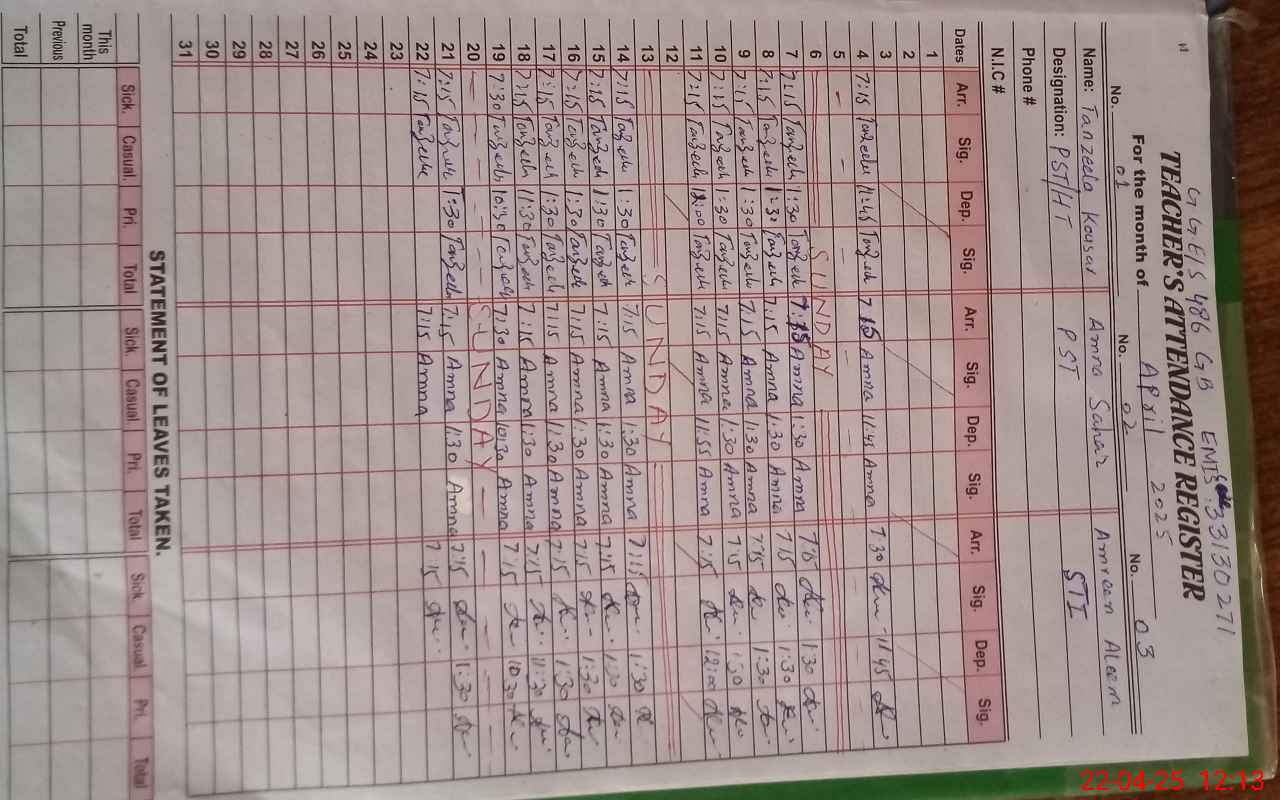 G G E/S 486 GB EMIS Code: 33130271
TEACHER'S ATTENDANCE REGISTER
For the month of April 2025
No. 01 No. 02 No. 03
Name: Tanzeela Kousar Amna Sahar Amreen Aleem
Designation: PST/HT PST STI
Phone #
N.I.C #
Dates Arr. Sig. Dep. Sig. Arr. Sig. Dep. Sig. Arr. Sig. Dep. Sig.
1
2
3
4 7:15 11:45 7:15 Amna 11:45 Amna 7:30 11:45
5
6 SUNDAY
7 7:15 1:30 7:15 Amna 1:30 Amna 7:15 1:30
8 7:15 1:30 7:15 Amna 1:30 Amna 7:15 1:30
9 7:15 1:30 7:15 Amna 1:30 Amna 7:15 1:30
10 7:15 1:30 7:15 Amna 1:30 Amna 7:15 1:30
11 7:15 12:00 7:15 Amna 11:55 Amna 7:15 12:00
12
13 SUNDAY
14 7:15 1:30 7:15 Amna 1:30 Amna 7:15 1:30
15 7:15 1:30 7:15 Amna 1:30 Amna 7:15 1:30
16 7:15 1:30 7:15 Amna 1:30 Amna 7:15 1:30
17 7:15 1:30 7:15 Amna 1:30 Amna 7:15 1:30
18 7:15 11:30 7:15 Amna 11:30 Amna 7:15 11:30
19 7:30 10:30 7:30 Amna 10:30 Amna 7:15 10:30
20 SUNDAY
21 7:15 1:30 7:15 Amna 1:30 Amna 7:15 1:30
22 7:15 7:15 Amna 7:15
23
24
25
26
27
28
29
30
31
STATEMENT OF LEAVES TAKEN.
Sick. Casual. Pri. Total Sick. Casual. Pri. Total Sick. Casual. Pri. Total
This month
Previous
Total
22-04-25 12:13